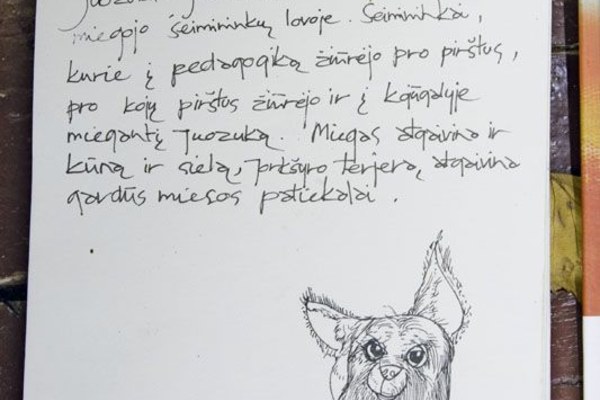 Juozuką,
miegojo šeimininkų lovoje. Šeimininkai,
kurie į pedagogiką žiūrėjo pro pirštus,
pro kojų pirštus žiūrėjo ir į kojūgalyje
miegantį Juozuką. Miegas atgaivina ir
kūną ir sielą, Jorkšyro terjerą, atgaivina
gardūs mėsos patiekalai.